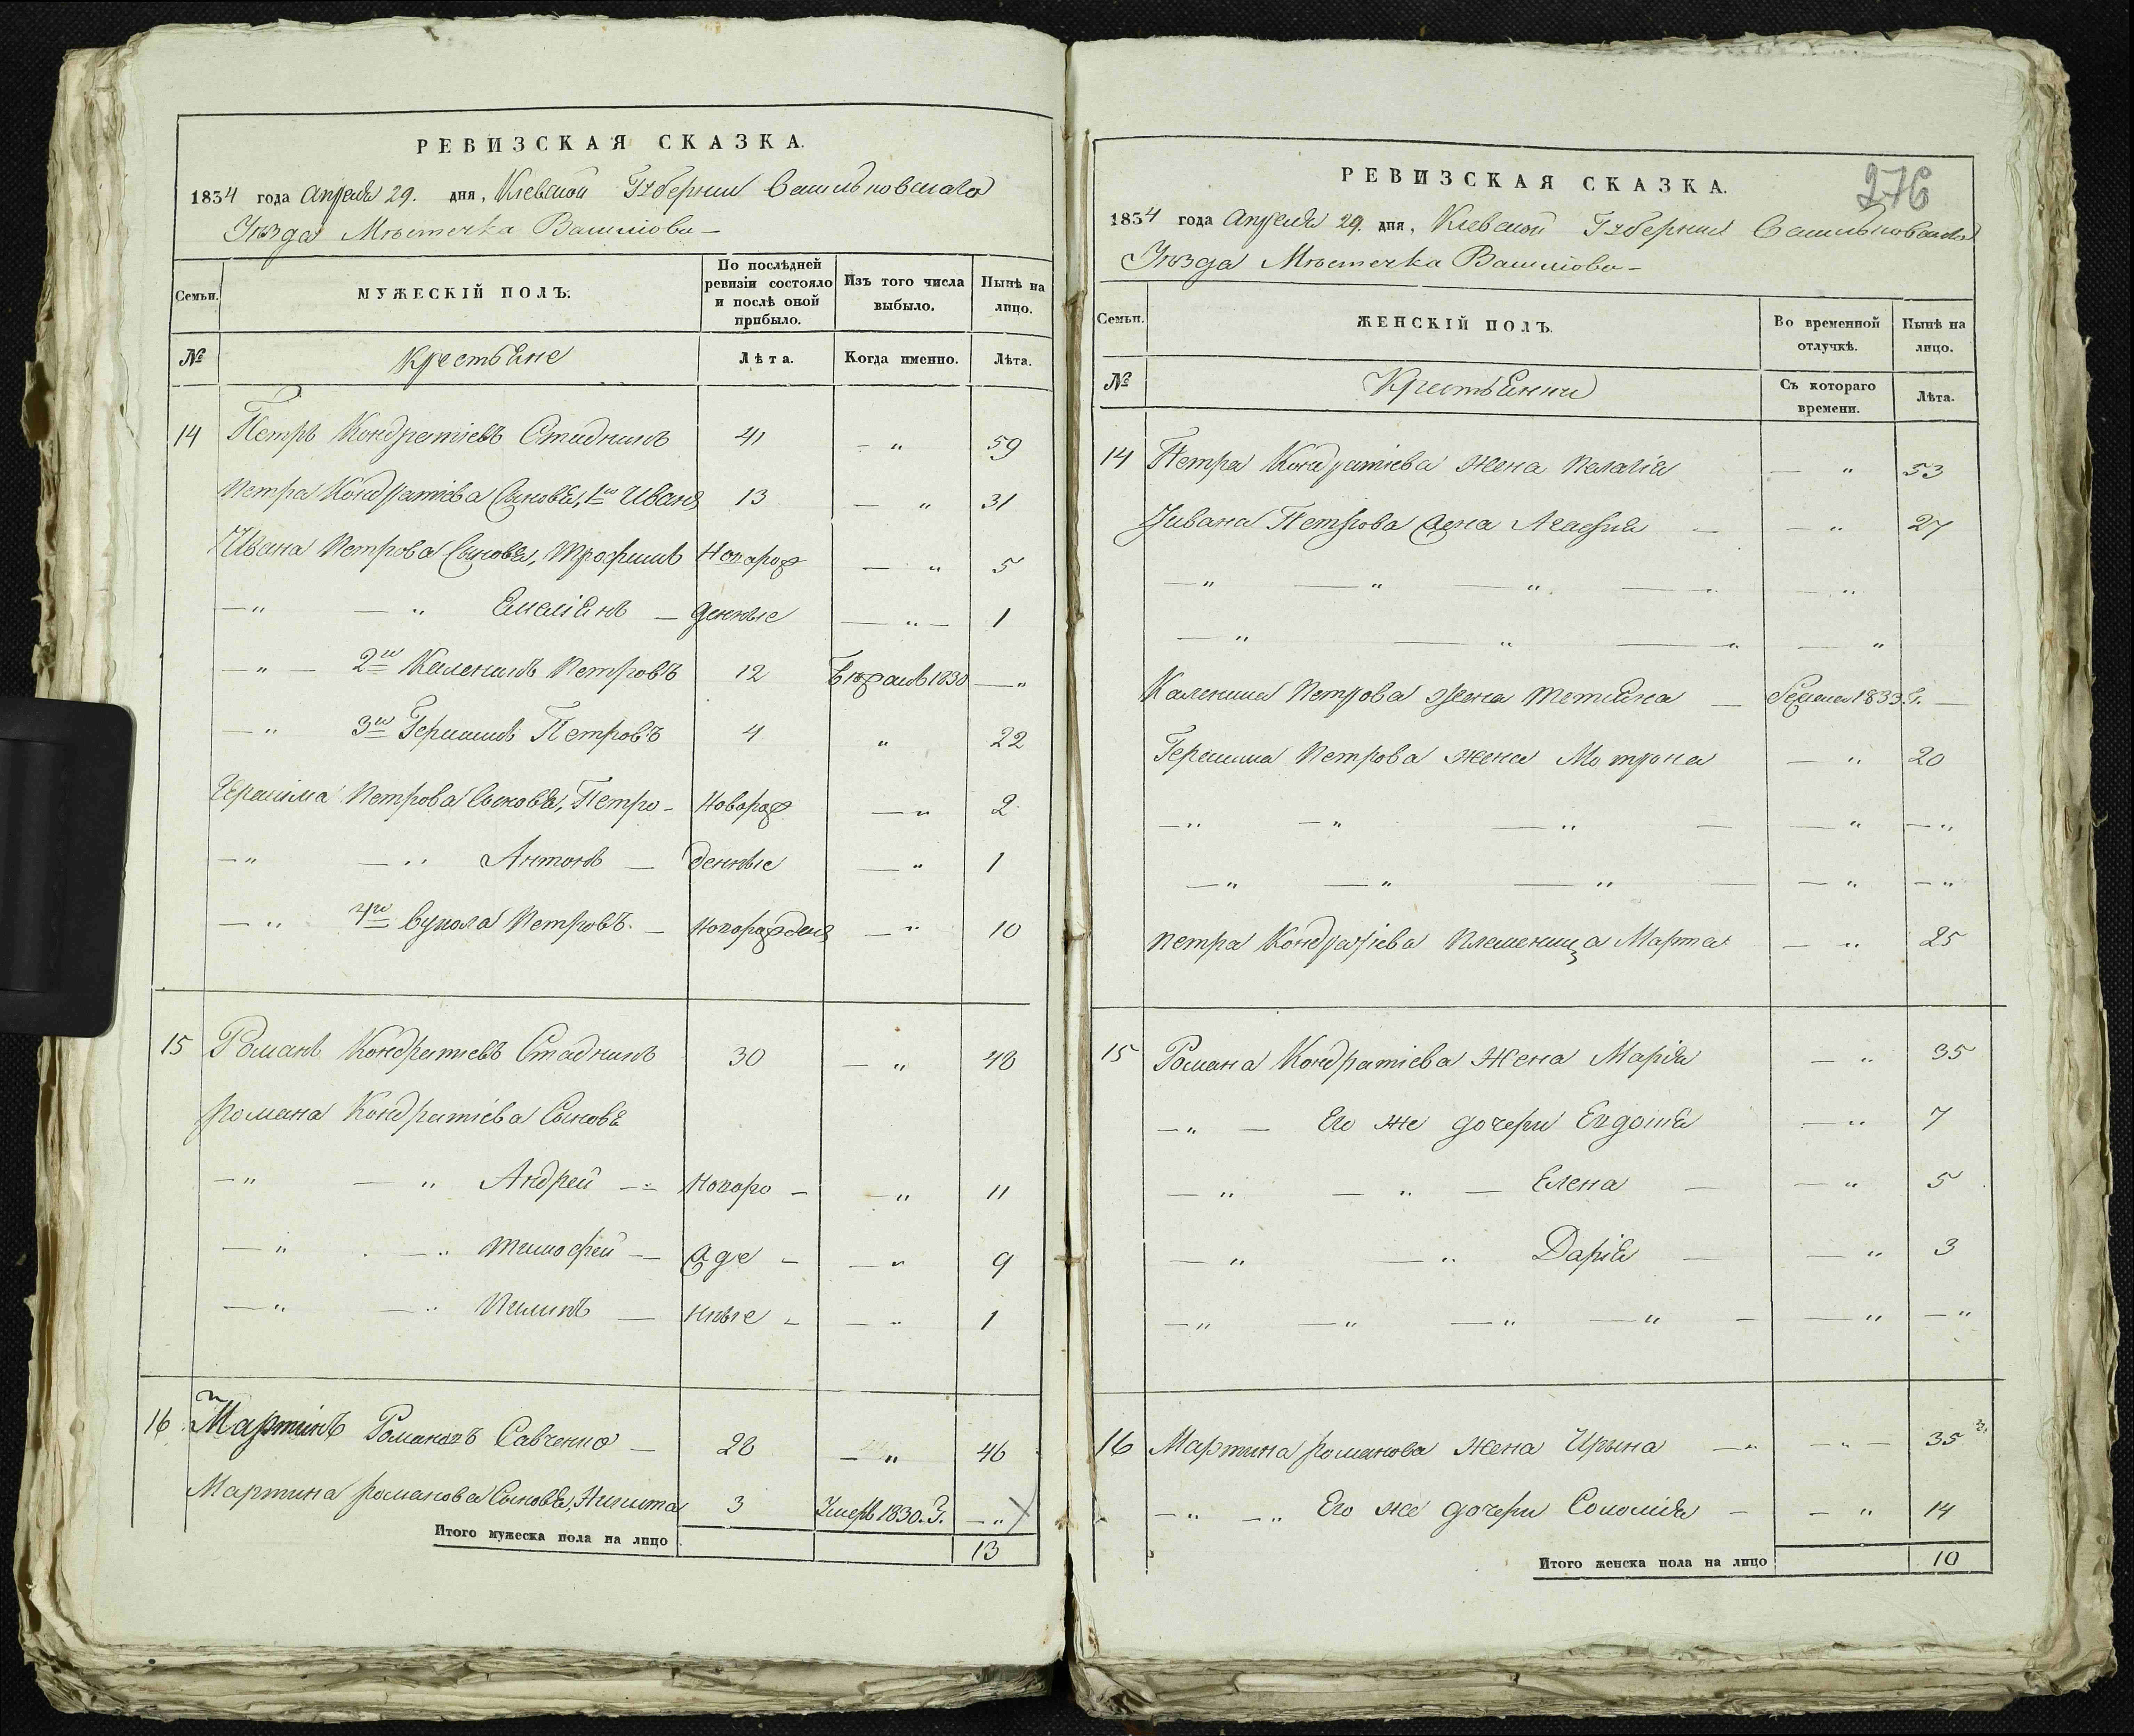 РЕВИЗСКАЯ СКАЗКА.
1834 года Апреля 29. дня, Киевской Губернии Васильковскаго
Уезда Местечка Василкова
Семьи. МУЖЕСКІЙ ПОЛЪ. По послѣдней ревизіи состояло и послѣ оной прибыло. Изъ того числа выбыло. Нынѣ на лицо.
№ Крестьяне Лѣта. Когда именно. Лѣта.
14 Петръ Кондратіевъ Стадникъ 41 — „ 59
Петра Кондратіева Сыновья, 1й Иванъ 13 — „ 31
Ивана Петрова Сыновья, Трофимъ Новорож — „ 5
— „ — „ Емеліянъ — денные — „ — 1
— „ — 2й Каленикъ Петровъ 12 1830 — „
— „ 3й Герасимъ Петровъ 4 „ 22
Герасима Петрова Сыновья, Петро - Новорож — „ 2
— „ — „ Антонъ — денные — „ 1
— „ 4й Вукола Петровъ. — Новорожден — „ 10
15 Романъ Кондратіевъ Стадникъ 30 — „ 48
Романа Кондратіева Сыновья
— „ — „ Андрей — „ Новоро - — „ 11
— „ — „ Тимофей — жде - — „ 9
— „ — „ Пилипъ — нные - — „ 1
16 Мартинъ Романовъ Савченко — 28 — „ 46
Мартина Романова Сыновья, Никита 3 Умеръ 1830. Г. — „
Итого мужеска пола на лицо 13
276
РЕВИЗСКАЯ СКАЗКА.
1834 года Апреля 29. дня, Киевской Губернии Васильковскаго
Уезда Местечка Василкова
Семьи. ЖЕНСКІЙ ПОЛЪ. Во временной отлучкѣ. Нынѣ на лицо.
№ Крестьянки Съ котораго времени. Лѣта.
14 Петра Кондратіева жена Пелагія — „ 53
Ивана Петрова жена Агафія — — „ 27
— „ — „ — „ — „ — „
— „ — „ — „ — „
Каленика Петрова жена Татіяна — 1833. Г. —
Герасима Петрова жена Мотрона — „ 20
— „ — „ — „ — — „ — „
— „ — „ — „ — — „ — „
Петра Кондратіева племенница Марта — „ 25
15 Романа Кондратіева жена Марія — „ 35
— „ — Его же дочери Евдокія — „ 7
— „ — „ — Елена — — „ 5
— „ — „ Дарія — — „ 3
— „ — „ — „ — „ — — „ — „
16 Мартина Романова жена Ирына — „ — „ — 35
— „ — „ Его же дочери Соломія — — „ 14
Итого женска пола на лицо 10